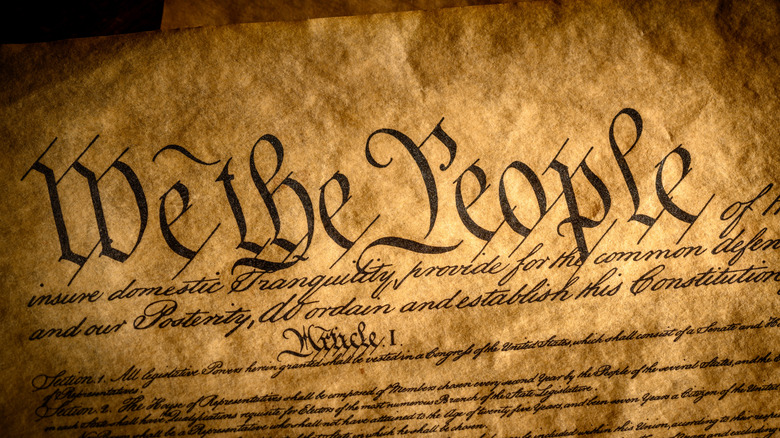 We the People of
insure domestic Tranquility, provide for the common defen
and our Posterity, do ordain and establish this Constitution
Article. I.
Section. 1. All legislative Powers herein granted shall be vested in a Congress of the United States, which shall consist of a Senate and
of Representatives.
Section. 2. The House of Representatives shall be composed of Members chosen every second Year by the People of the several States, and the
in each State shall have Qualifications requisite for Electors of the most numerous Branch of the State Legislature.
No Person shall be a Representative who shall not have attained to the Age of twenty five Years, and been seven Years a Citizen of the United
in which he shall be chosen.
within this Union, according to their